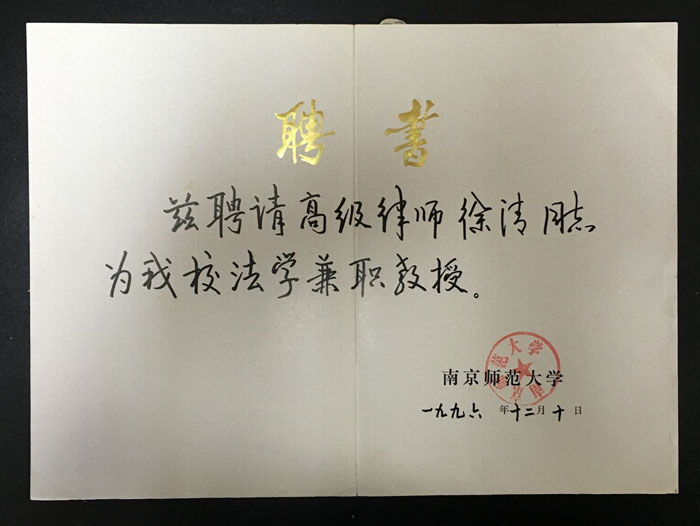 聘书
兹聘请高级律师徐清同志
为我校法学兼职教授。
南京师范大学
南京师范大学
一九九六年十二月十日